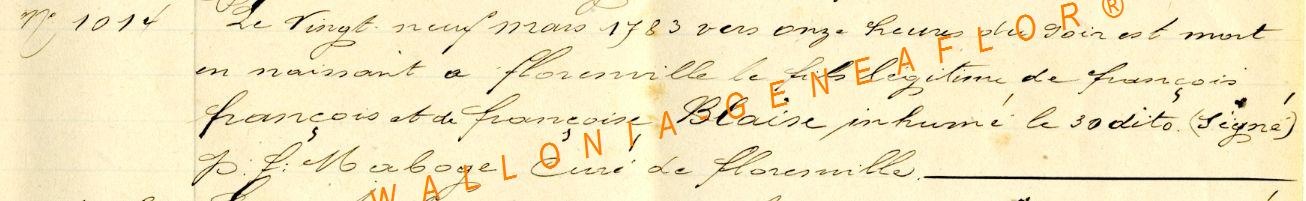 N° 1014 Le Vingt neuf mars 1783 vers onze heures du Soir est mort
en naissant a florenville le fils légitime de françois
françois et de françoise Blaise inhumé le 30 dito. (Signé)
p. f. Maboge Curé de florenville.
WALLONIA-GENEAFLOR®